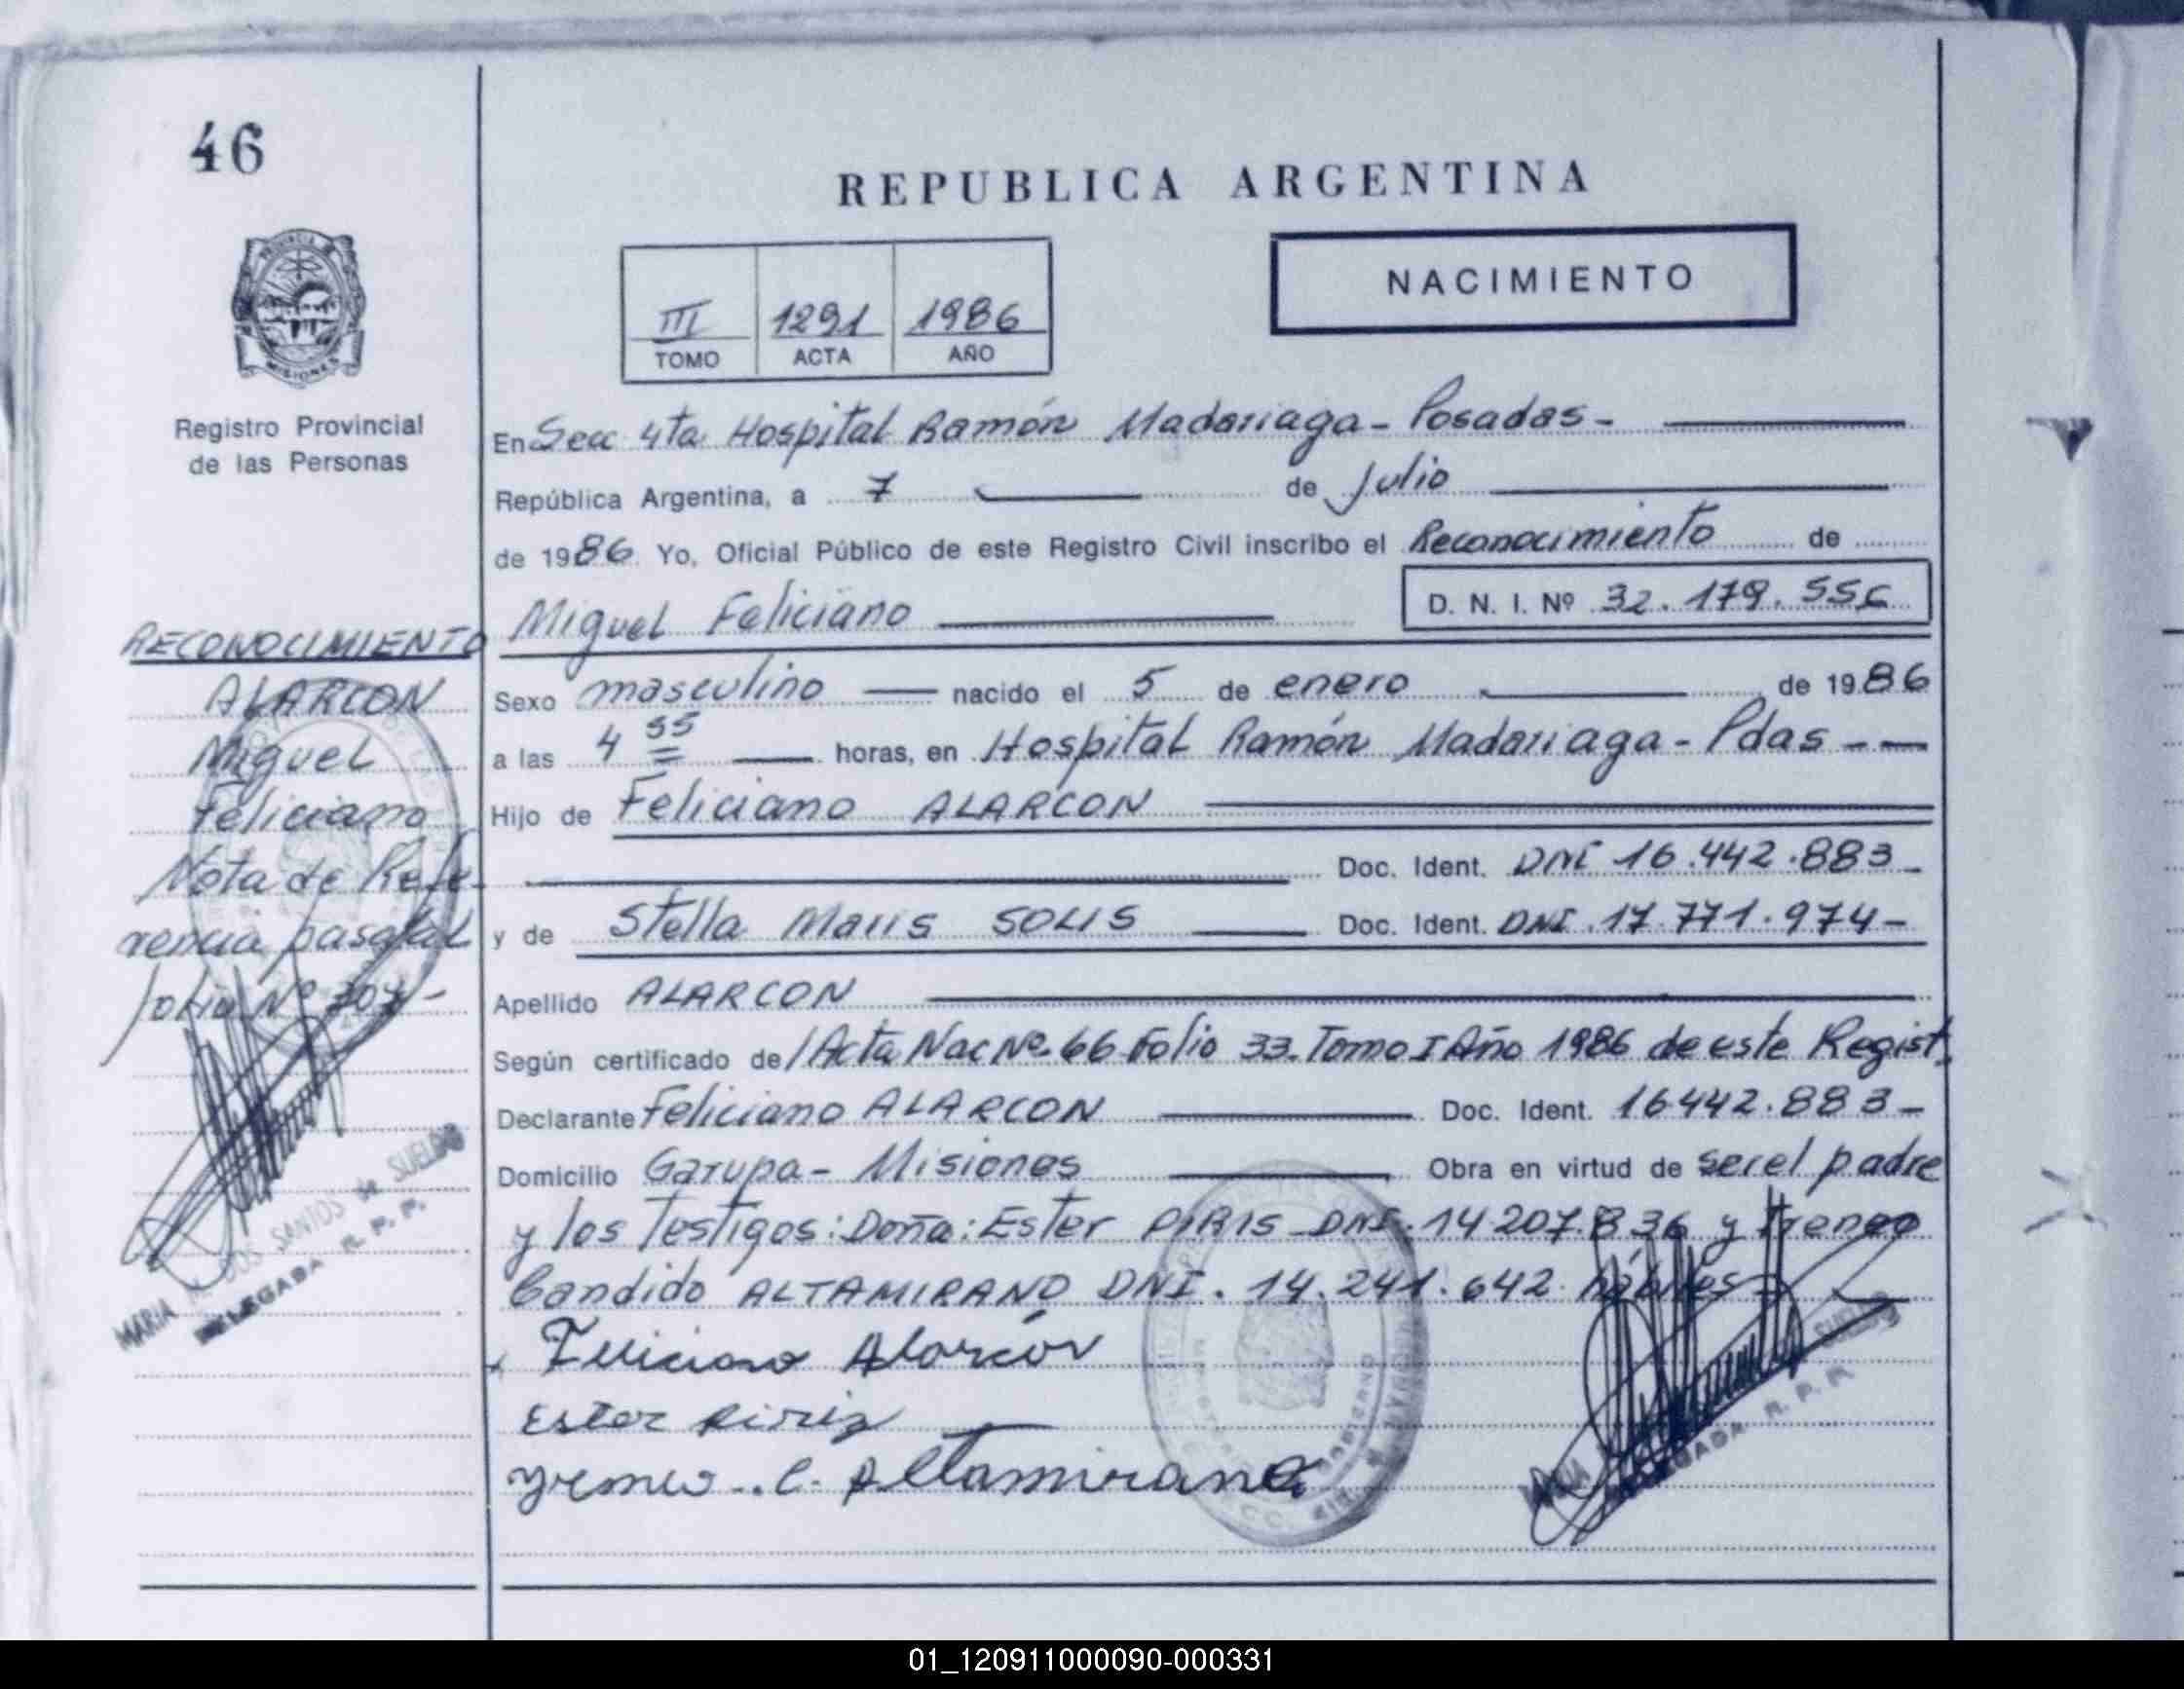 46
REPUBLICA ARGENTINA
NACIMIENTO
III 1291 1986
TOMO ACTA AÑO
MISIONES
Registro Provincial
de las Personas
En Secc 4ta Hospital Ramón Madariaga - Posadas -
República Argentina, a 7 de Julio
de 1986 Yo, Oficial Público de este Registro Civil inscribo el Reconocimiento de
Miguel Feliciano D. N. I. Nº 32.179.556
RECONOCIMIENTO
ALARCON
Miguel
Feliciano
Nota de Refe
rencia pasa al
folio Nº 307-
MARIA DOS SANTOS de SUELDO
DELEGADA R. P. P.
Sexo masculino nacido el 5 de enero de 1986
a las 4 55 horas, en Hospital Ramón Madariaga - Pdas -
Hijo de Feliciano ALARCON
Doc. Ident. DNI 16.442.883-
y de Stella Maris SOLIS Doc. Ident. DNI. 17.771.974-
Apellido ALARCON
Según certificado de/Acta Nac Nº 66 Folio 33. Tomo I Año 1986 de este Regist.
Declarante Feliciano ALARCON Doc. Ident. 16442.883-
Domicilio Garupa - Misiones Obra en virtud de ser el padre
y los Testigos: Doña: Ester PIRIS DNI. 14.207.836 y Ireneo
Candido ALTAMIRANO DNI. 14.241.642. hábiles
Feliciano Alarcón
Ester Piriz
Yreneo. C. Altamirano
SUELDO
DELEGADA R. P. P.
01_120911000090-000331